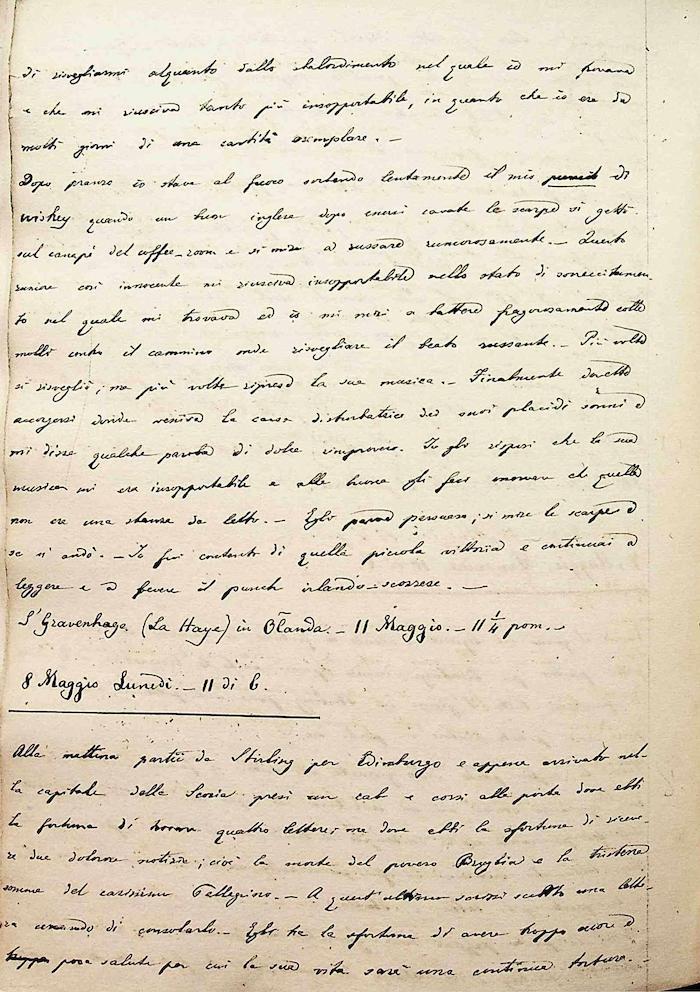 di risvegliarmi alquanto dallo sbalordimento nel quale io mi trovava
e che mi riusciva tanto più insopportabile, in quanto che io era da
molti giorni di una castità esemplare. –
Dopo pranzo io stava al fuoco sorbendo lentamente il mio punch di
wiskey quando un buon inglese dopo essersi cavate le scarpe si gettò
sul canapé del coffee-room e si mise a russare rumorosamente. – Questo
rumore così innocente mi riusciva insopportabile nello stato di
to nel quale mi trovava ed io mi misi a battere fragorosamente colle
molli contro il cammino onde risvegliare il beato russante. – Più volte
si risvegliò; ma più volte riprese la sua musica. – Finalmente dovette
accorgersi donde veniva la causa disturbatrice dei suoi placidi sonni e
mi disse qualche parola di dolce rimprovero. Io gli risposi che la sua
musica mi era insopportabile e alle buone gli feci osservare che quella
non era una stanza da letto. – Egli parve persuaso; si mise le scarpe e
se ne andò. – Io fui contento di quella piccola vittoria e continuai a
leggere e a bevere il punch irlando-scozzese. –
S'Gravenhage. (La Haye) in Olanda. – 11 Maggio. – 11 ¼ pom. –
8 Maggio Lunedì. – 11 di 6.
Alla mattina partii da Stirling per Edimburgo e appena arrivato nel-
la capitale della Scozia presi un cab e corsi alla posta dove ebbi
la fortuna di trovare quattro lettere; ma dove ebbi la sfortuna di riceve-
re due dolorose notizie; cioè la morte del povero e la tristezza
somma del carissimo Pellegrino. – A quest'ultimo scrissi subito una lette-
ra cercando di consolarlo. – Egli ha la sfortuna di avere troppo cuore e
troppa poca salute per cui la sua vita sarà una continua tortura. –